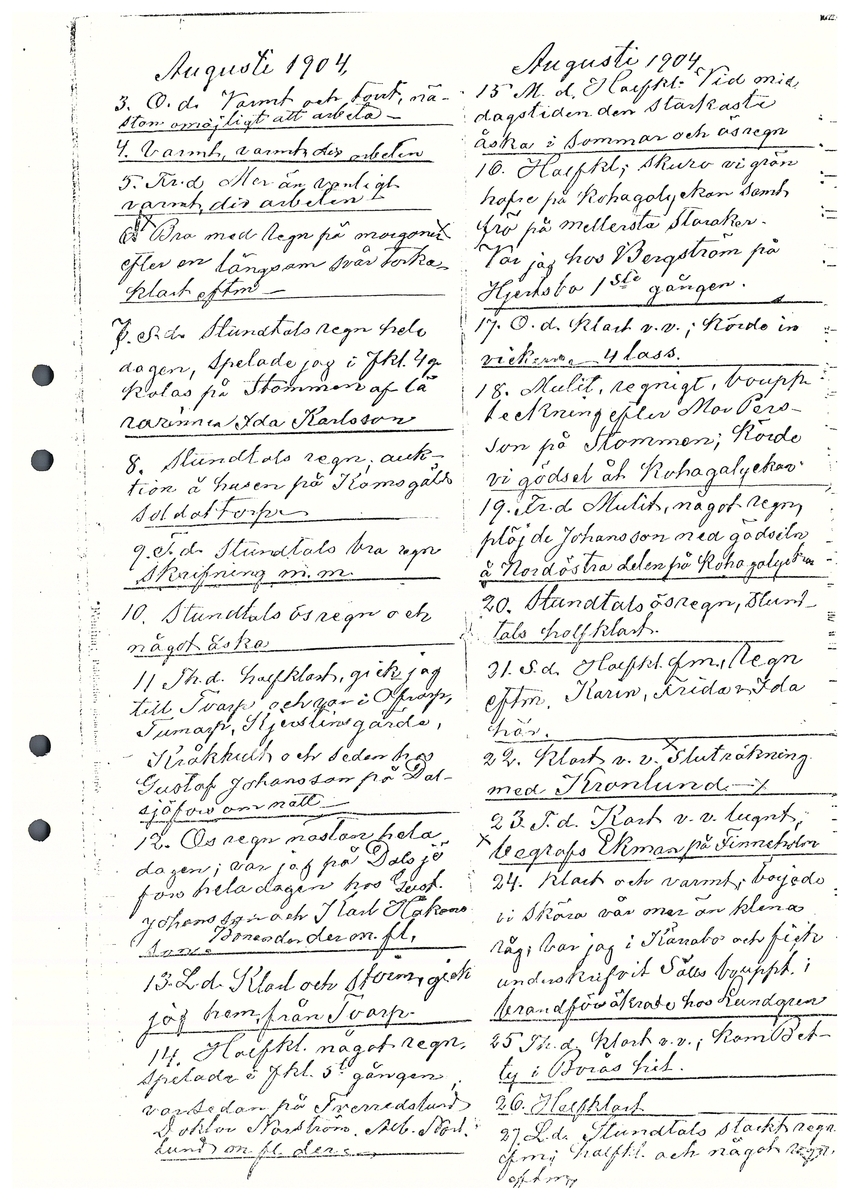 Augusti 1904,
3. O. d. Varmt och torrt, nä-
stan omöjligt att arbeta -
4. Varmt, varmt, div arbeten
5. Tr. d. Mer än vanligt
varmt, div arbeten
6. Bra med regn på morgonen X
efter en långsam svår torka,
klart eftm -
7. S. d. Stundtals regn hela
dagen, spelade jag i fkl. 4
kalas på Stommen af lä
rarinnan Ida Karlsson
8. Stundtals regn; auk-
tion å husen på Komsgäls
soldattorp
9. T. d. Stundtals bra regn
Skrifning m. m.
10. Stundtals ösregn och
något åska
11 Th. d. halfklart, gick jag
till Tvarp och var i Ofvarp,
Tumarp, Kjerstinsgärde,
Kråkhult och sedan hos
Gustaf Johansson på Dal-
sjöfors om natt
12. Ösregn nästan hela
dagen; var jag på Dalsjö
fors hela dagen hos Gust.
Johansson och Karl Håkans
son. der m. fl,
13. L. d. Klart och storm, gick
jag hem, från Tvarp
14. Halfkl. något regn,
spelade i fkl. 5t gången,
var sedan på Tverredslund
Doktor Norström. Alb. Nord.
Lund m. fl. der -
Augusti 1904
15 M. d. Halfkl. Vid mid
dagstiden den starkaste
åska i sommar och ösregn
16. Halfkl; skuro vi grön
hafre på Kohagalyckan samt
frö på mellersta Storåker.
Var jag hos Bergström på
Hjertsbo 1ste gången.
17. O. d. klart v. v.; körde in
vickerna - 4 lass.
18. Mulit, regnigt, boupp
teckning efter Mor Pers-
son på Stommen; körde
vi gödsel åt Kohagalyckan
19. Fr. d. Mulit, något regn,
plöjde Johansson ned gödseln
å Nordöstra delen på Kohagalyckan
20. Stundtals ösregn, stund-
tals halfklart.
21. S. d. Halfkl. fm, Regn
eftm. Karin, Frida o Ida
här.
22. klart v. v. X Sluträkning
med Kronlund - X
23 T. d. Kart v. v. lugnt,
X begrofs Ekman på Finnekulla
24. klart och varmt; började
vi skära vår mer än klena
råg; var jag i Kärrabo och fick
underskrifvit bouppt. i
brandförsäkrade hos Lundgren
25 Th. d. klart v. v.; kom Bet-
ty i Borås hit.
26. Halfklart
27. L. d. Stundtals starkt regn
fm; halfkl. och något regn,
eftm,